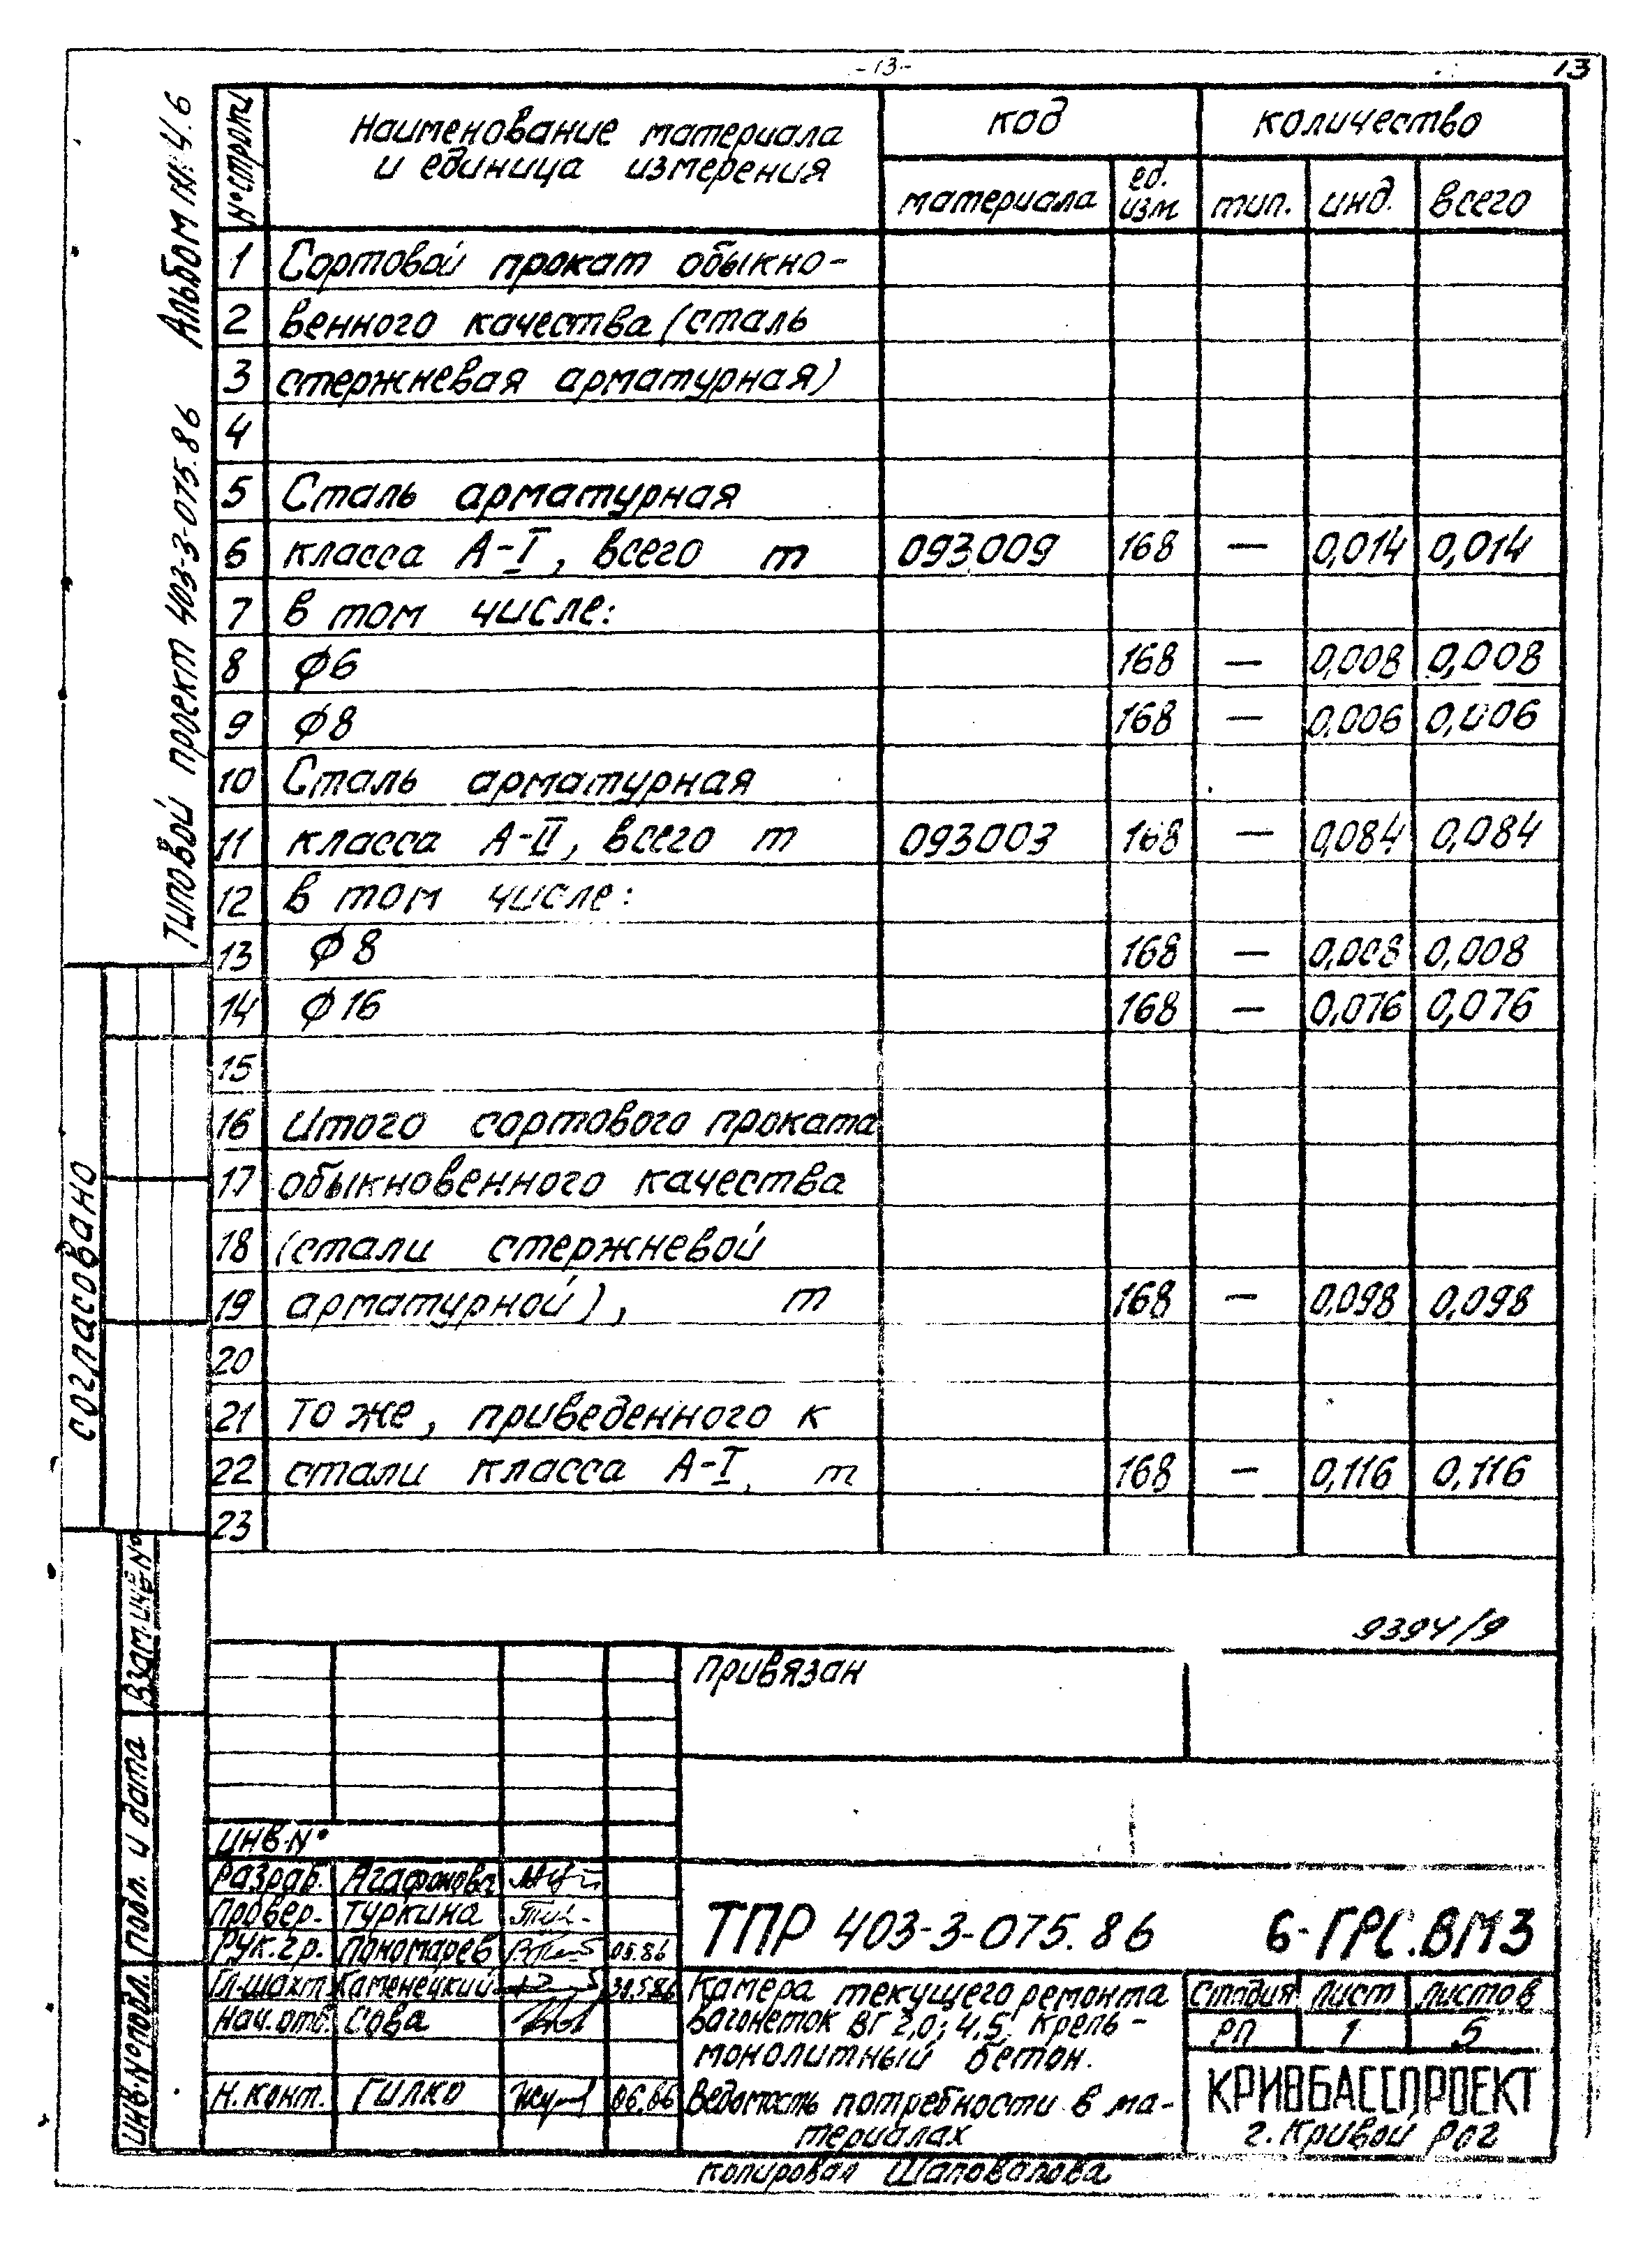 -13-
13
Альбом №4.6
Типовой проект 403-3-075.86
№ строки
Наименование материала
и единица измерения
код
количество
материала
ед.
изм
тип.
инд.
всего
1 Сортовой прокат обыкно-
2 венного качества (сталь
3 стержневая арматурная)
4
5 Сталь арматурная
6 класса А-I, всего т 093009 168 — 0,014 0,014
7 в том числе:
8 ф6 168 — 0,008 0,008
9 ф8 168 — 0,006 0,006
10 Сталь арматурная
11 класса А-II, всего т 093003 168 — 0,084 0,084
12 в том числе:
13 ф8 168 — 0,008 0,008
14 ф16 168 — 0,076 0,076
15
16 Итого сортового проката
17 обыкновенного качества
18 (стали стержневой
19 арматурной), т 168 — 0,098 0,098
20
21 То же, приведенного к
22 стали класса А-I, т 168 — 0,116 0,116
23
согласовано
Взам.инв№
подп. и дата
инв.№подл.
9394/9
привязан
инв.№
Разраб. Агафонова
Провер. Туркина
Рук.гр. Пономарев 05.86
Гл.шахт Каменецкий 30.5.86
Нач.отд. Сова
Н.конт. Гилко 06.86
ТПР 403-3-075.86 6-ГРС.ВМ3
Камера текущего ремонта
вагонеток ВГ 2,0; 4,5. Крепь -
монолитный бетон.
Ведомость потребности в ма-
териалах
стадия лист листов
РП 1 5
КРИВБАССПРОЕКТ
г. Кривой Рог
копировал Шаповалова